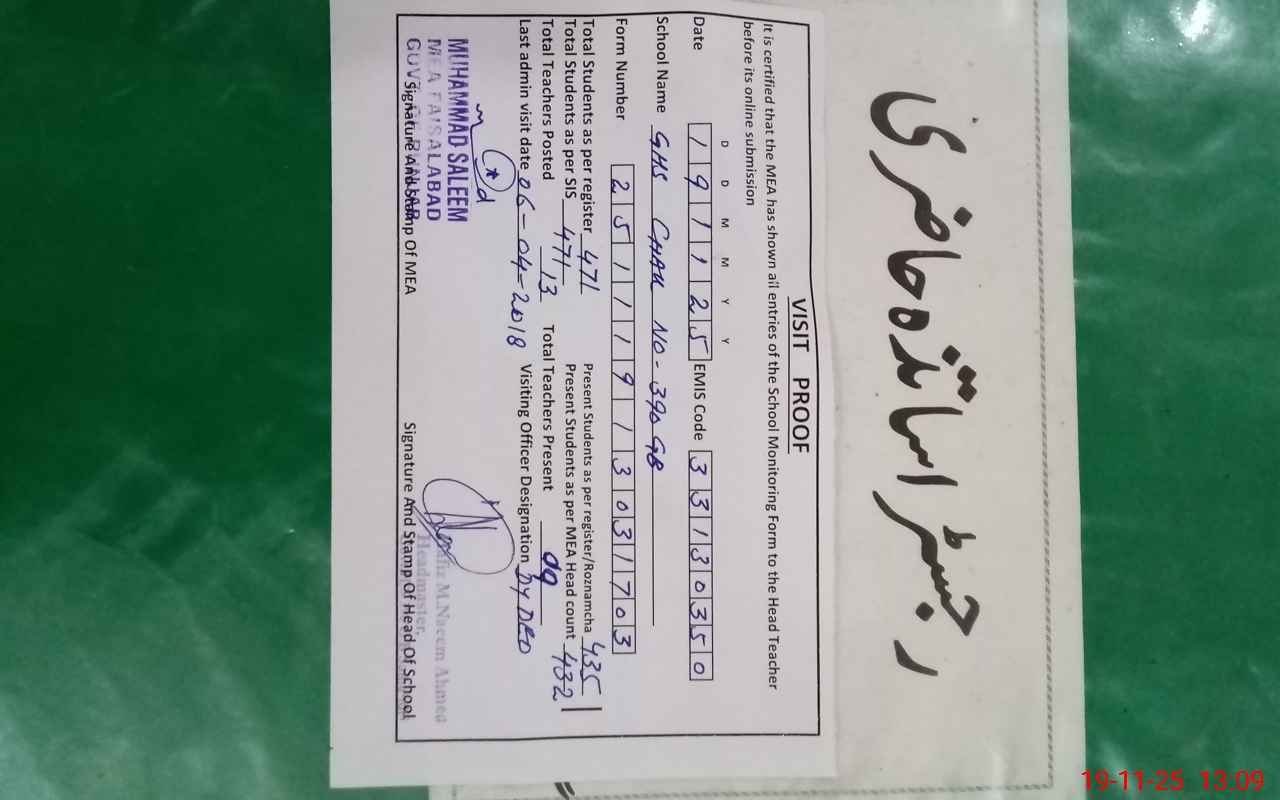 رجسٹر اساتذہ حاضری
VISIT PROOF
It is certified that the MEA has shown all entries of the School Monitoring Form to the Head Teacher
before its online submission
D D M M Y Y
Date 1 9 1 1 2 5 EMIS Code 3 3 1 3 0 3 5 0
School Name GHS CHAK NO - 390 GB
Form Number 2 5 1 1 1 9 1 3 0 3 1 7 0 3
Total Students as per register 471 Present Students as per register/Roznamcha 435
Total Students as per SIS 471 Present Students as per MEA Head count 432
Total Teachers Posted 13 Total Teachers Present 09
Last admin visit date 06-04-2018 Visiting Officer Designation Dy DEO
MUHAMMAD SALEEM
MEA FAISALABAD
M.Naeem Ahmed
Headmaster,
Signature And Stamp Of MEA Signature And Stamp Of Head Of School
19-11-25 13:09